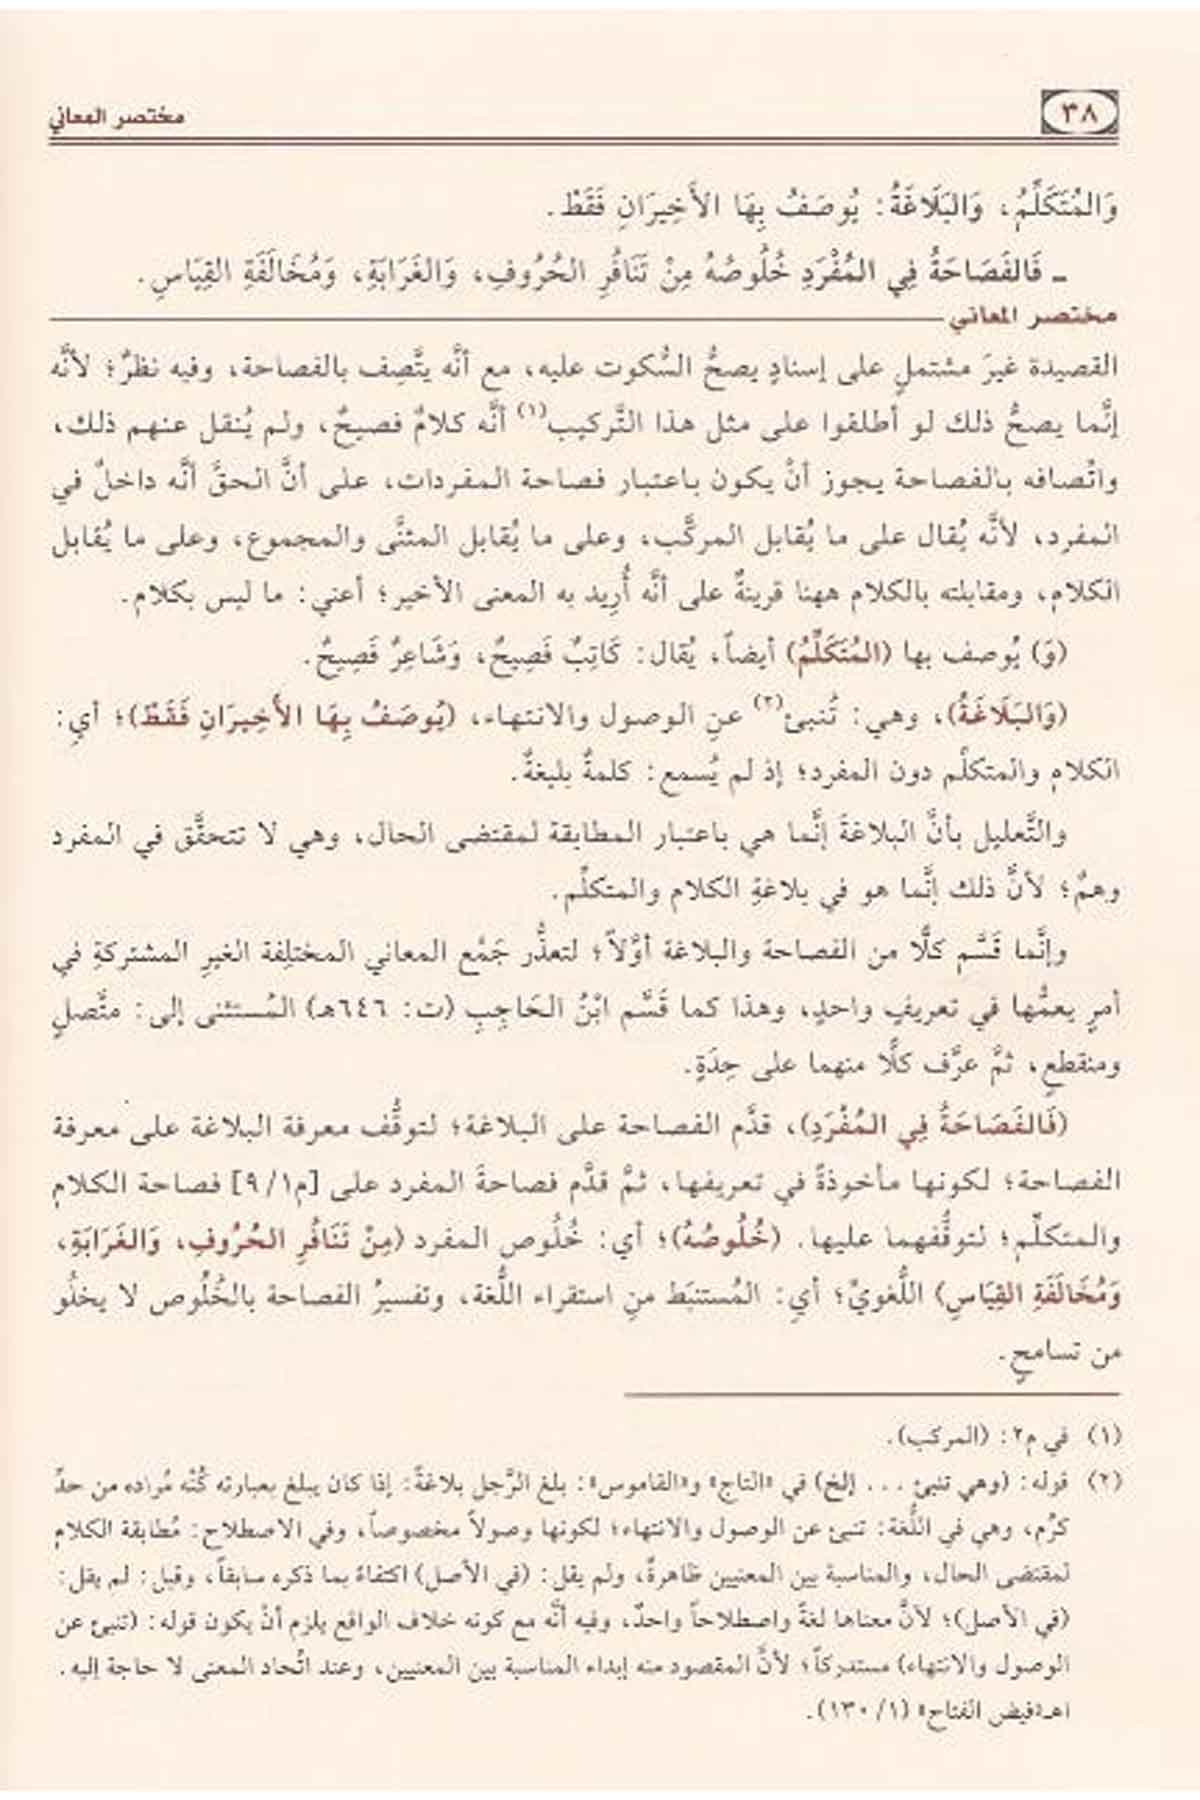 ٣٨
مختصر المعاني
وَالمُتَكَلِّمُ، وَالبَلَاغَةُ: يُوصَفُ بِهَا الأَخِيرَانِ فَقَطْ.
ـ فَالفَصَاحَةُ فِي المُفْرَدِ خُلُوصُهُ مِنْ تَنَافُرِ الحُرُوفِ، وَالغَرَابَةِ، وَمُخَالَفَةِ القِيَاسِ.
مختصر المعاني
القصيدة غيرَ مشتملٍ على إسنادٍ يصحُّ السُّكوت عليه، مع أنَّه يتَّصِف بالفصاحة، وفيه نظرٌ؛ لأنَّه
إنَّما يصحُّ ذلك لو أطلقوا على مثل هذا التَّركيب(١) أنَّه كلامٌ فصيحٌ، ولم يُنقل عنهم ذلك،
واتِّصافه بالفصاحة يجوز أنْ يكون باعتبار فصاحة المفردات، على أنَّ الحقَّ أنَّه داخلٌ في
المفرد، لأنَّه يُقال على ما يُقابل المركَّب، وعلى ما يُقابل المثنَّى والمجموع، وعلى ما يُقابل
الكلام، ومقابلته بالكلام ههنا قرينةٌ على أنَّه أُرِيد به المعنى الأخير؛ أعني: ما ليس بكلام.
(وَ) يُوصف بها (المُتَكَلِّمُ) أيضاً، يُقال: كَاتِبٌ فَصِيحٌ، وَشَاعِرٌ فَصِيحٌ.
(وَالبَلَاغَةُ)، وهي: تُنبئ(٢) عنِ الوصول والانتهاء، (يُوصَفُ بِهَا الأَخِيرَانِ فَقَطْ)؛ أيِ:
الكلام والمتكلِّم دون المفرد؛ إذ لم يُسمع: كلمةٌ بليغةٌ.
والتَّعليل بأنَّ البلاغةَ إنَّما هي باعتبار المطابقة لمقتضى الحال، وهي لا تتحقَّق في المفرد
وهمٌ؛ لأنَّ ذلك إنَّما هو في بلاغةِ الكلام والمتكلِّم.
وإنَّما قَسَّم كلًّا من الفصاحة والبلاغة أوَّلاً؛ لتعذُّر جَمْع المعاني المختلِفة الغيرِ المشتركةِ في
أمرٍ يعمُّها في تعريفٍ واحدٍ، وهذا كما قَسَّم ابْنُ الحَاجِبِ (ت: ٦٤٦هـ) المُستثنى إلى: متَّصلٍ
ومنقطعٍ، ثمَّ عرَّف كلًّا منهما على حِدَةٍ.
(فَالفَصَاحَةُ فِي المُفْرَدِ)، قدَّم الفصاحة على البلاغة؛ لتوقُّف معرفة البلاغة على معرفة
الفصاحة؛ لكونها مأخوذةً في تعريفها، ثمَّ قدَّم فصاحةَ المفرد على [م٩/١] فصاحة الكلام
والمتكلِّم؛ لتوقُّفهما عليها. (خُلُوصُهُ)؛ أي: خُلُوص المفرد (مِنْ تَنَافُرِ الحُرُوفِ، وَالغَرَابَةِ،
وَمُخَالَفَةِ القِيَاسِ) اللُّغويِّ؛ أيِ: المُستنبَط منِ استقراء اللُّغة، وتفسيرُ الفصاحة بالخُلُوص لا يخلُو
من تسامحٍ.
(١) في م٢: (المركب).
(٢) قوله: (وهي تنبئ ... إلخ) في «التاج» و«القاموس»: بلغ الرَّجل بلاغةً: إذا كان يبلغ بعبارته كُنْه مُراده من حدِّ
كرُم، وهي في اللُّغة: تنبئ عن الوصول والانتهاء؛ لكونها وصولاً مخصوصاً، وفي الاصطلاح: مُطابقة الكلام
لمقتضى الحال، والمناسبة بين المعنيين ظاهرةٌ، ولم يقل: (في الأصل) اكتفاءً بما ذكره سابقاً، وقيل: لم يقل:
(في الأصل)؛ لأنَّ معناها لغةً واصطلاحاً واحدٌ، وفيه أنَّه مع كونه خلاف الواقع يلزم أنْ يكون قوله: (تنبئ عن
الوصول والانتهاء) مستدركاً؛ لأنَّ المقصود منه إبداء المناسبة بين المعنيين، وعند اتِّحاد المعنى لا حاجة إليه.
اهـ«فيض الفتاح» (١/ ١٣٠).